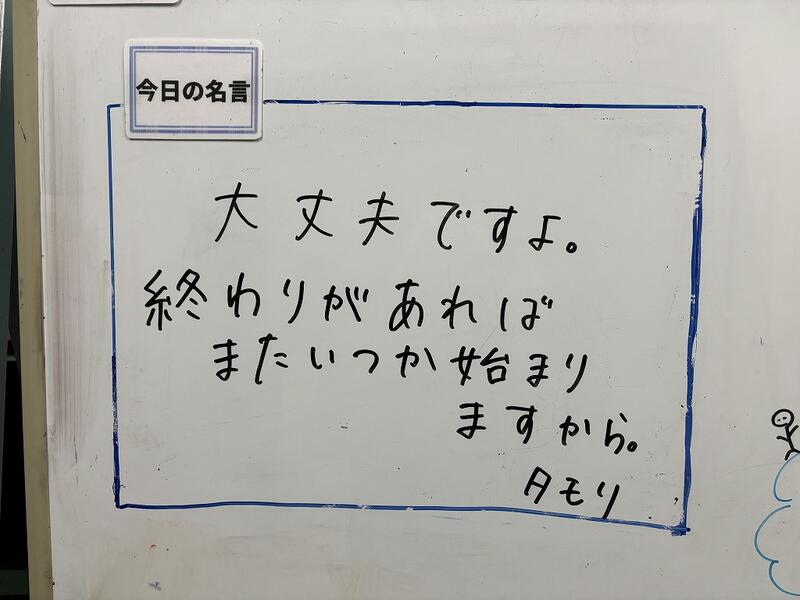 今日の名言
大丈夫ですよ。
終わりがあれば
またいつか始まり
ますから。
タモリ